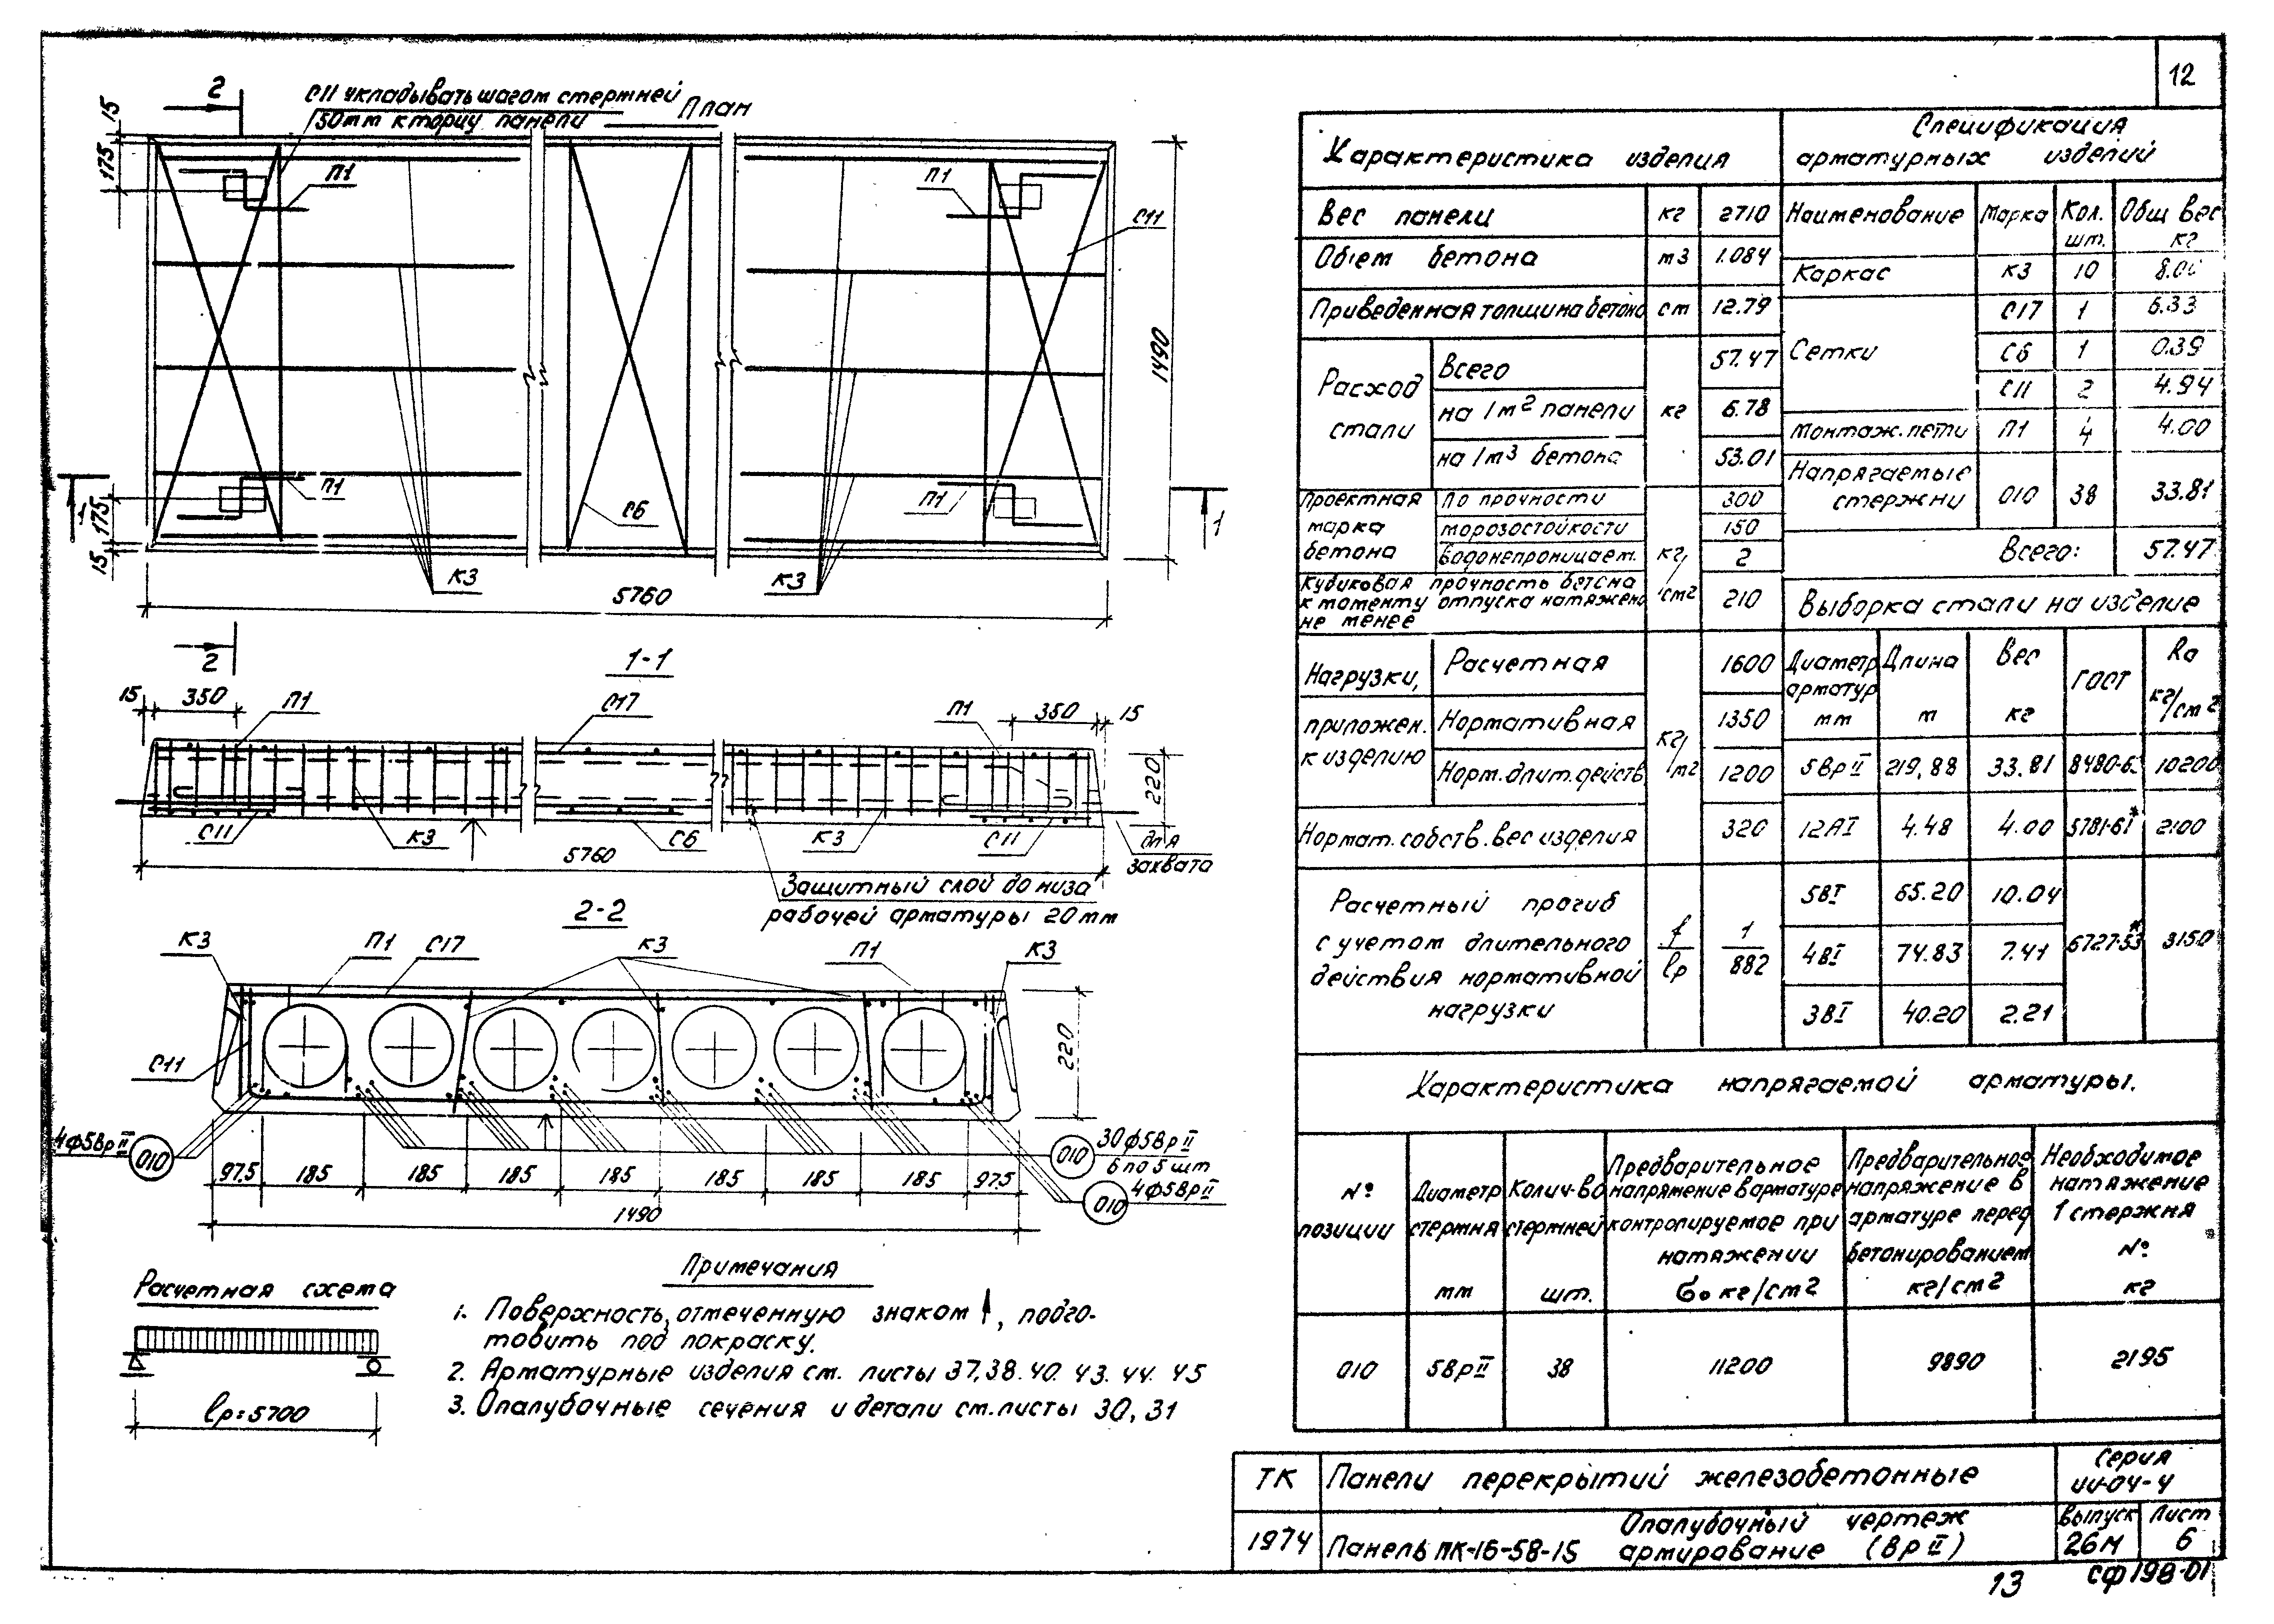 12
2
С11 укладывать шагом стержней
50мм к торцу панели
План
15
175
П1
П1
П1
П1
С11
1490
П1
П1
П1
П1
С6
К3
К3
175
15
1
1
5760
2
1-1
15
350
П1
С17
П1
350
15
220
С11
К3
С6
К3
С11
для
захвата
5760
Защитный слой до низа
рабочей арматуры 20мм
2-2
К3
П1
С17
К3
П1
К3
С11
220
4ф5ВрII
010
010
30ф5ВрII
6 по 5 шт
010
4ф5ВрII
97.5
185
185
185
185
185
185
185
97.5
1490
Расчетная схема
lр=5700
Примечания
1. Поверхность, отмеченную знаком ↑, подго-
товить под покраску.
2. Арматурные изделия см. листы 37,38.40.43.44.45
3. Опалубочные сечения и детали см.листы 30,31
Характеристика изделия
Вес панели кг 2710
Обіем бетона м3 1.084
Приведенная толщина бетона см 12.79
Расход стали
кг
Всего 57.47
на 1м2 панели 6.78
на 1м3 бетона 53.01
Проектная марка бетона
По прочности 300
морозостойкости 150
Водонепроницаем. 2
кг/см2
Кубиковая прочность бетона
к моменту отпуска натяжен.
не менее
210
Нагрузки,
приложен.
к изделию
кг/м2
Расчетная 1600
Нормативная 1350
Норм.длит.действ. 1200
Нормат.собств.вес изделия 320
Расчетный прогиб
с учетом длительного
действия нормативной
нагрузки
f/lр
1/882
Спецификация
арматурных изделий
Наименование Марка Кол. шт. Общ вес кг
Каркас К3 10
Сетки
С17 1 6.33
С6 1 0.39
С11 2 4.94
Монтаж.петли П1 4 4.00
Напрягаемые
стержни 010 38 33.81
Всего: 57.47
Выборка стали на изделие
Диаметр арматур мм
Длина м
Вес кг
ГОСТ
Rа кг/см2
5ВрII 219,88 33.81 8480-63 10200
12АI 4.48 4.00 5781-61* 2100
5ВI 65.20 10.04
4ВI 74.83 7.41 6727-53* 3150
3ВI 40.20 2.21
Характеристика напрягаемой арматуры.
№ позиции
Диаметр стержня мм
Колич-во стержней шт.
Предварительное напряжение в арматуре контролируемое при натяжении σо кг/см2
Предварительное напряжение в арматуре перед бетонированием кг/см2
Необходимое натяжение 1 стержня № кг
010 5ВрII 38 11200 9890 2195
ТК
1974
Панели перекрытий железобетонные
Панель ПК-16-58-15
Опалубочный чертеж
армирование (ВрII)
Серия
ИИ-04-4
Выпуск
26М
Лист
6
13
СФ198-01